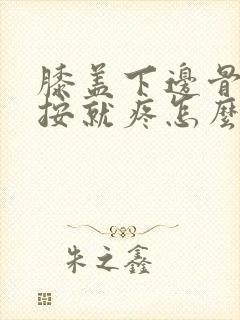 膝盖下邊骨
按就疼怎麼
朱之鑫